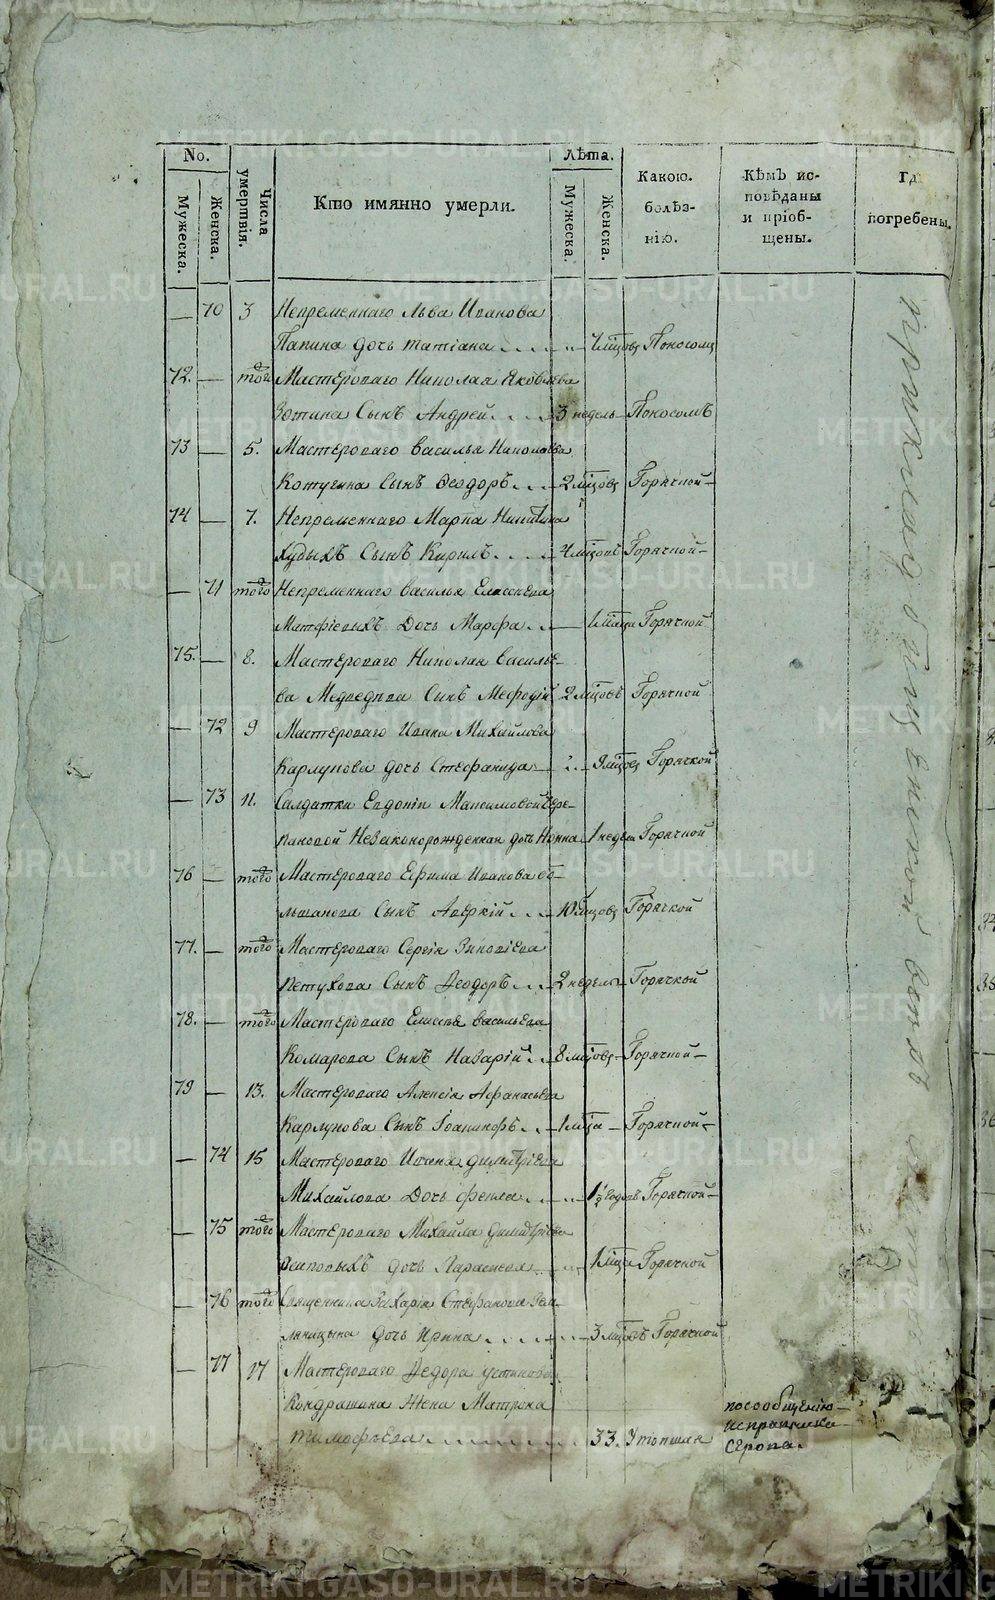 No.
Мужеска.
Женска.
Числа умертвія.
Кто имянно умерли.
Лѣта.
Мужеска.
Женска.
Какою.
болѣз-
нію.
Кѣмъ ис-
повѣданы
и пріоб-
щены.
Гдѣ
погребены.
— 70 3 Непременнаго Льва Иванова
Папина дочь татіана .... Поносомъ
72. — того Мастероваго Николая Яковлева
Зотина Сынъ Андрей .... 3 недель Поносомъ
73 — 5. Мастероваго Василья Николаева
Котугина Сынъ Феодоръ ... 2 мцовъ Горячкой
74 — 7. Непременнаго Марка Никитина
Худыхъ Сынъ Кирилъ .... 4 мцовъ Горячкой
— 71 того Непременнаго василья Елисеева
Матфіевыхъ Дочь Марфа .. 1 мца Горячкой
75. — 8. Мастероваго Николая Василье-
ва Медведева Сынъ Мефодій 2 мцовъ Горячкой
— 72 9 Мастероваго Ивана Михайлова
Карлукова дочь Стефанида 9 мцовъ Горячкой
— 73 11. Салдатки Евдокіи Максимовой
пановой Незаконорожденная дочь 1 недел Горячкой
76 — того Мастероваго Ефима Иванова бо-
льшакова Сынъ Аверкій ... 10 мцовъ Горячкой
77. — того Мастероваго Сергія Зиновіева
Петухова Сынъ Феодоръ ... 2 недель Горячкой
78. — того Мастероваго Елисея васильева
Комарова Сынъ Назарій .. 8 мцовъ Горячкой
79 — 13. Мастероваго Алексія Афанасьева
Карлукова Сынъ Іоанникъ .. 1 мца Горячкой
— 74 15 Мастероваго Ивана димитріева
Михайлова Дочь фекла .... 1 1/2 годовъ Горячкой
— 75 того Мастероваго Михайла димитріева
дочь Параскева 1 мца Горячкой
— 76 того Священника Захарія Стефанова
дочь Ирина .... 3 мцовъ Горячкой
— 77 17 Мастероваго Федора устинова
Кондрашина Жена Матрона
тимофеева .... 33. Утопшая
посообщенію
исправника
Серова.